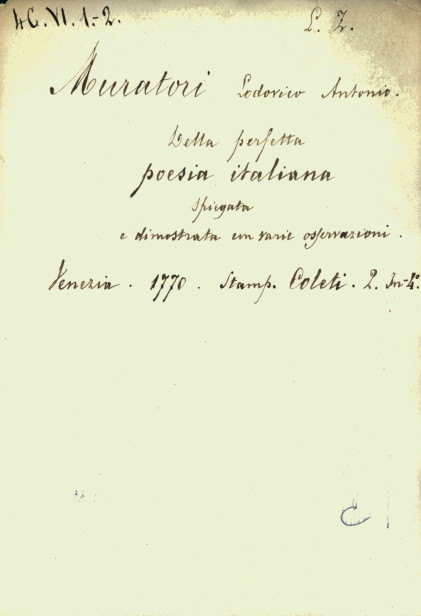 4C. VI. 1.-2.
L. Z.
Muratori Lodovico Antonio.
Della perfetta
poesia italiana
spiegata
e dimostrata con varie osservazioni.
Venezia. 1770. Stamp. Coleti. 2. In-4°